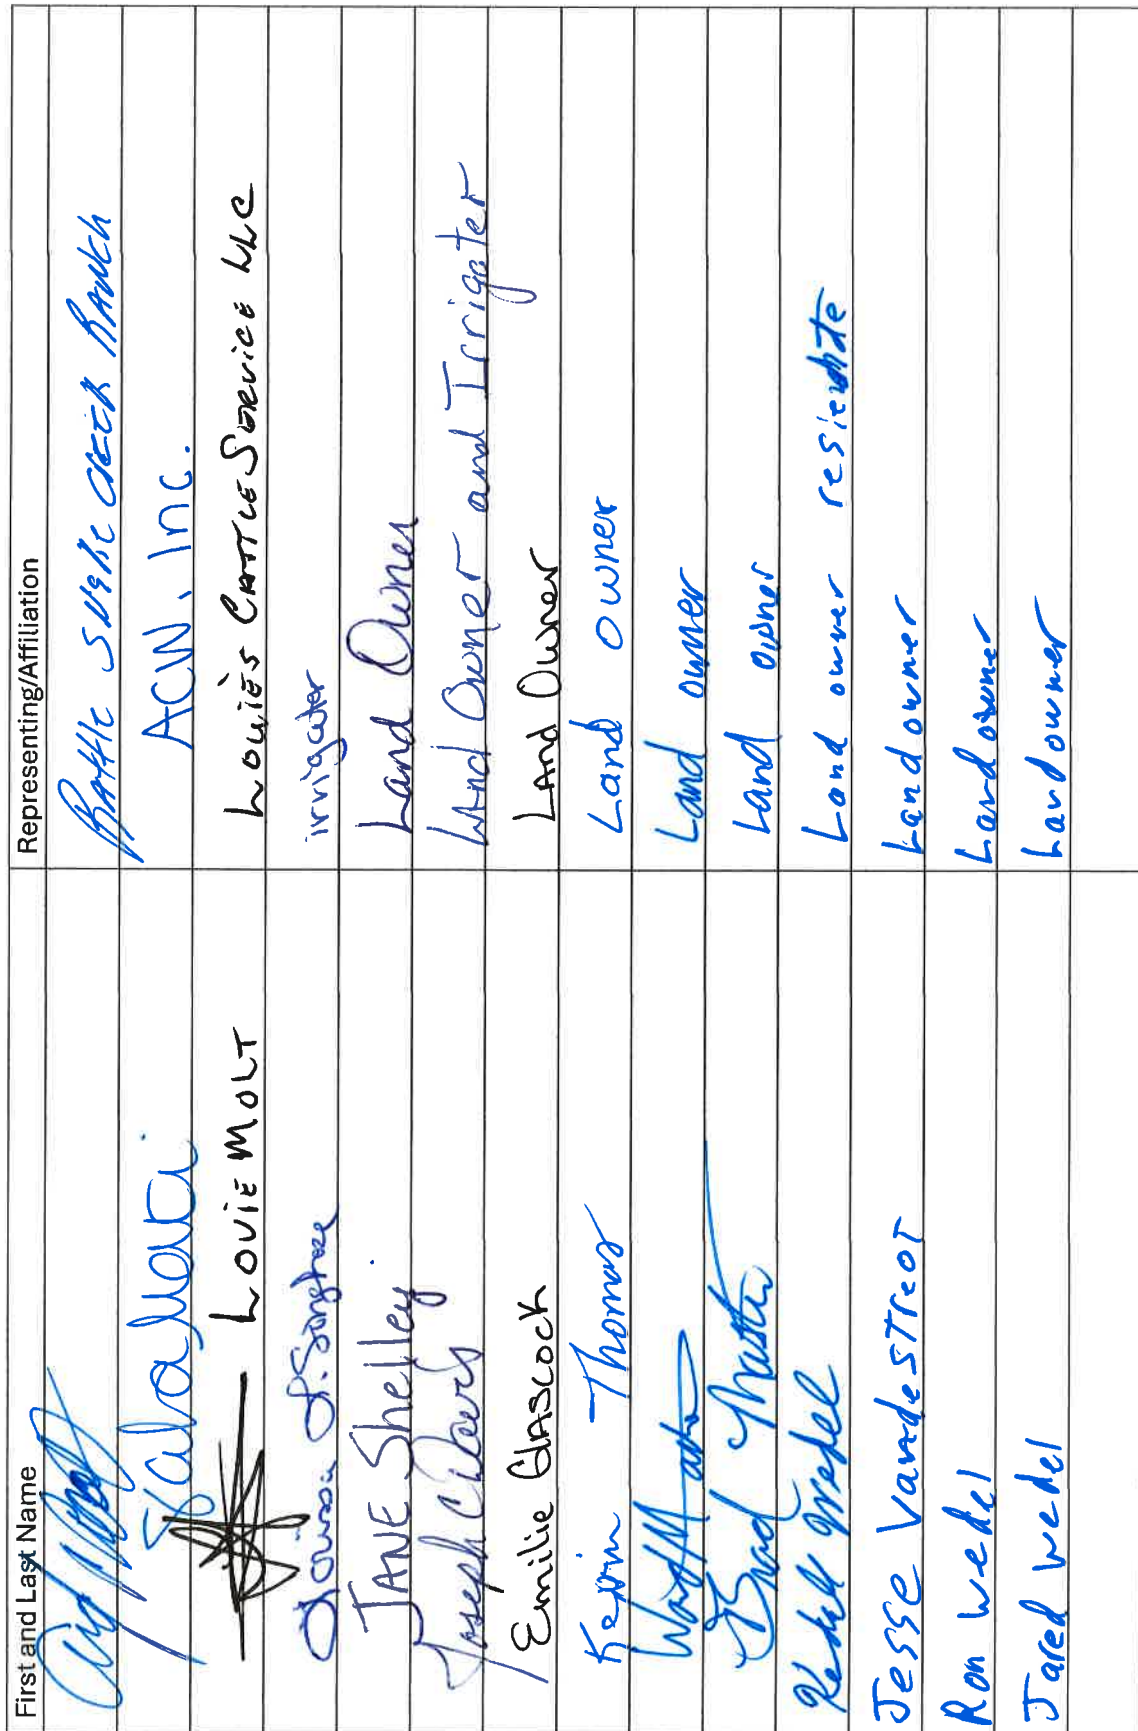 First and Last Name Representing/Affiliation
Rattle Snake Creek Ranch
ACW, Inc.
Louie Molt Louie's Cattle Service LLC
irrigater
Jane Shelley Land Owner
Joseph C Land Owner and Irrigater
Emilie Glascock Land Owner
Kevin Thomas Land owner
Land owner
Brad Land owner
Wedel Land owner
Jesse Vandestreot Landowner
Ron Wedel Landowner
Jared Wedel Landowner